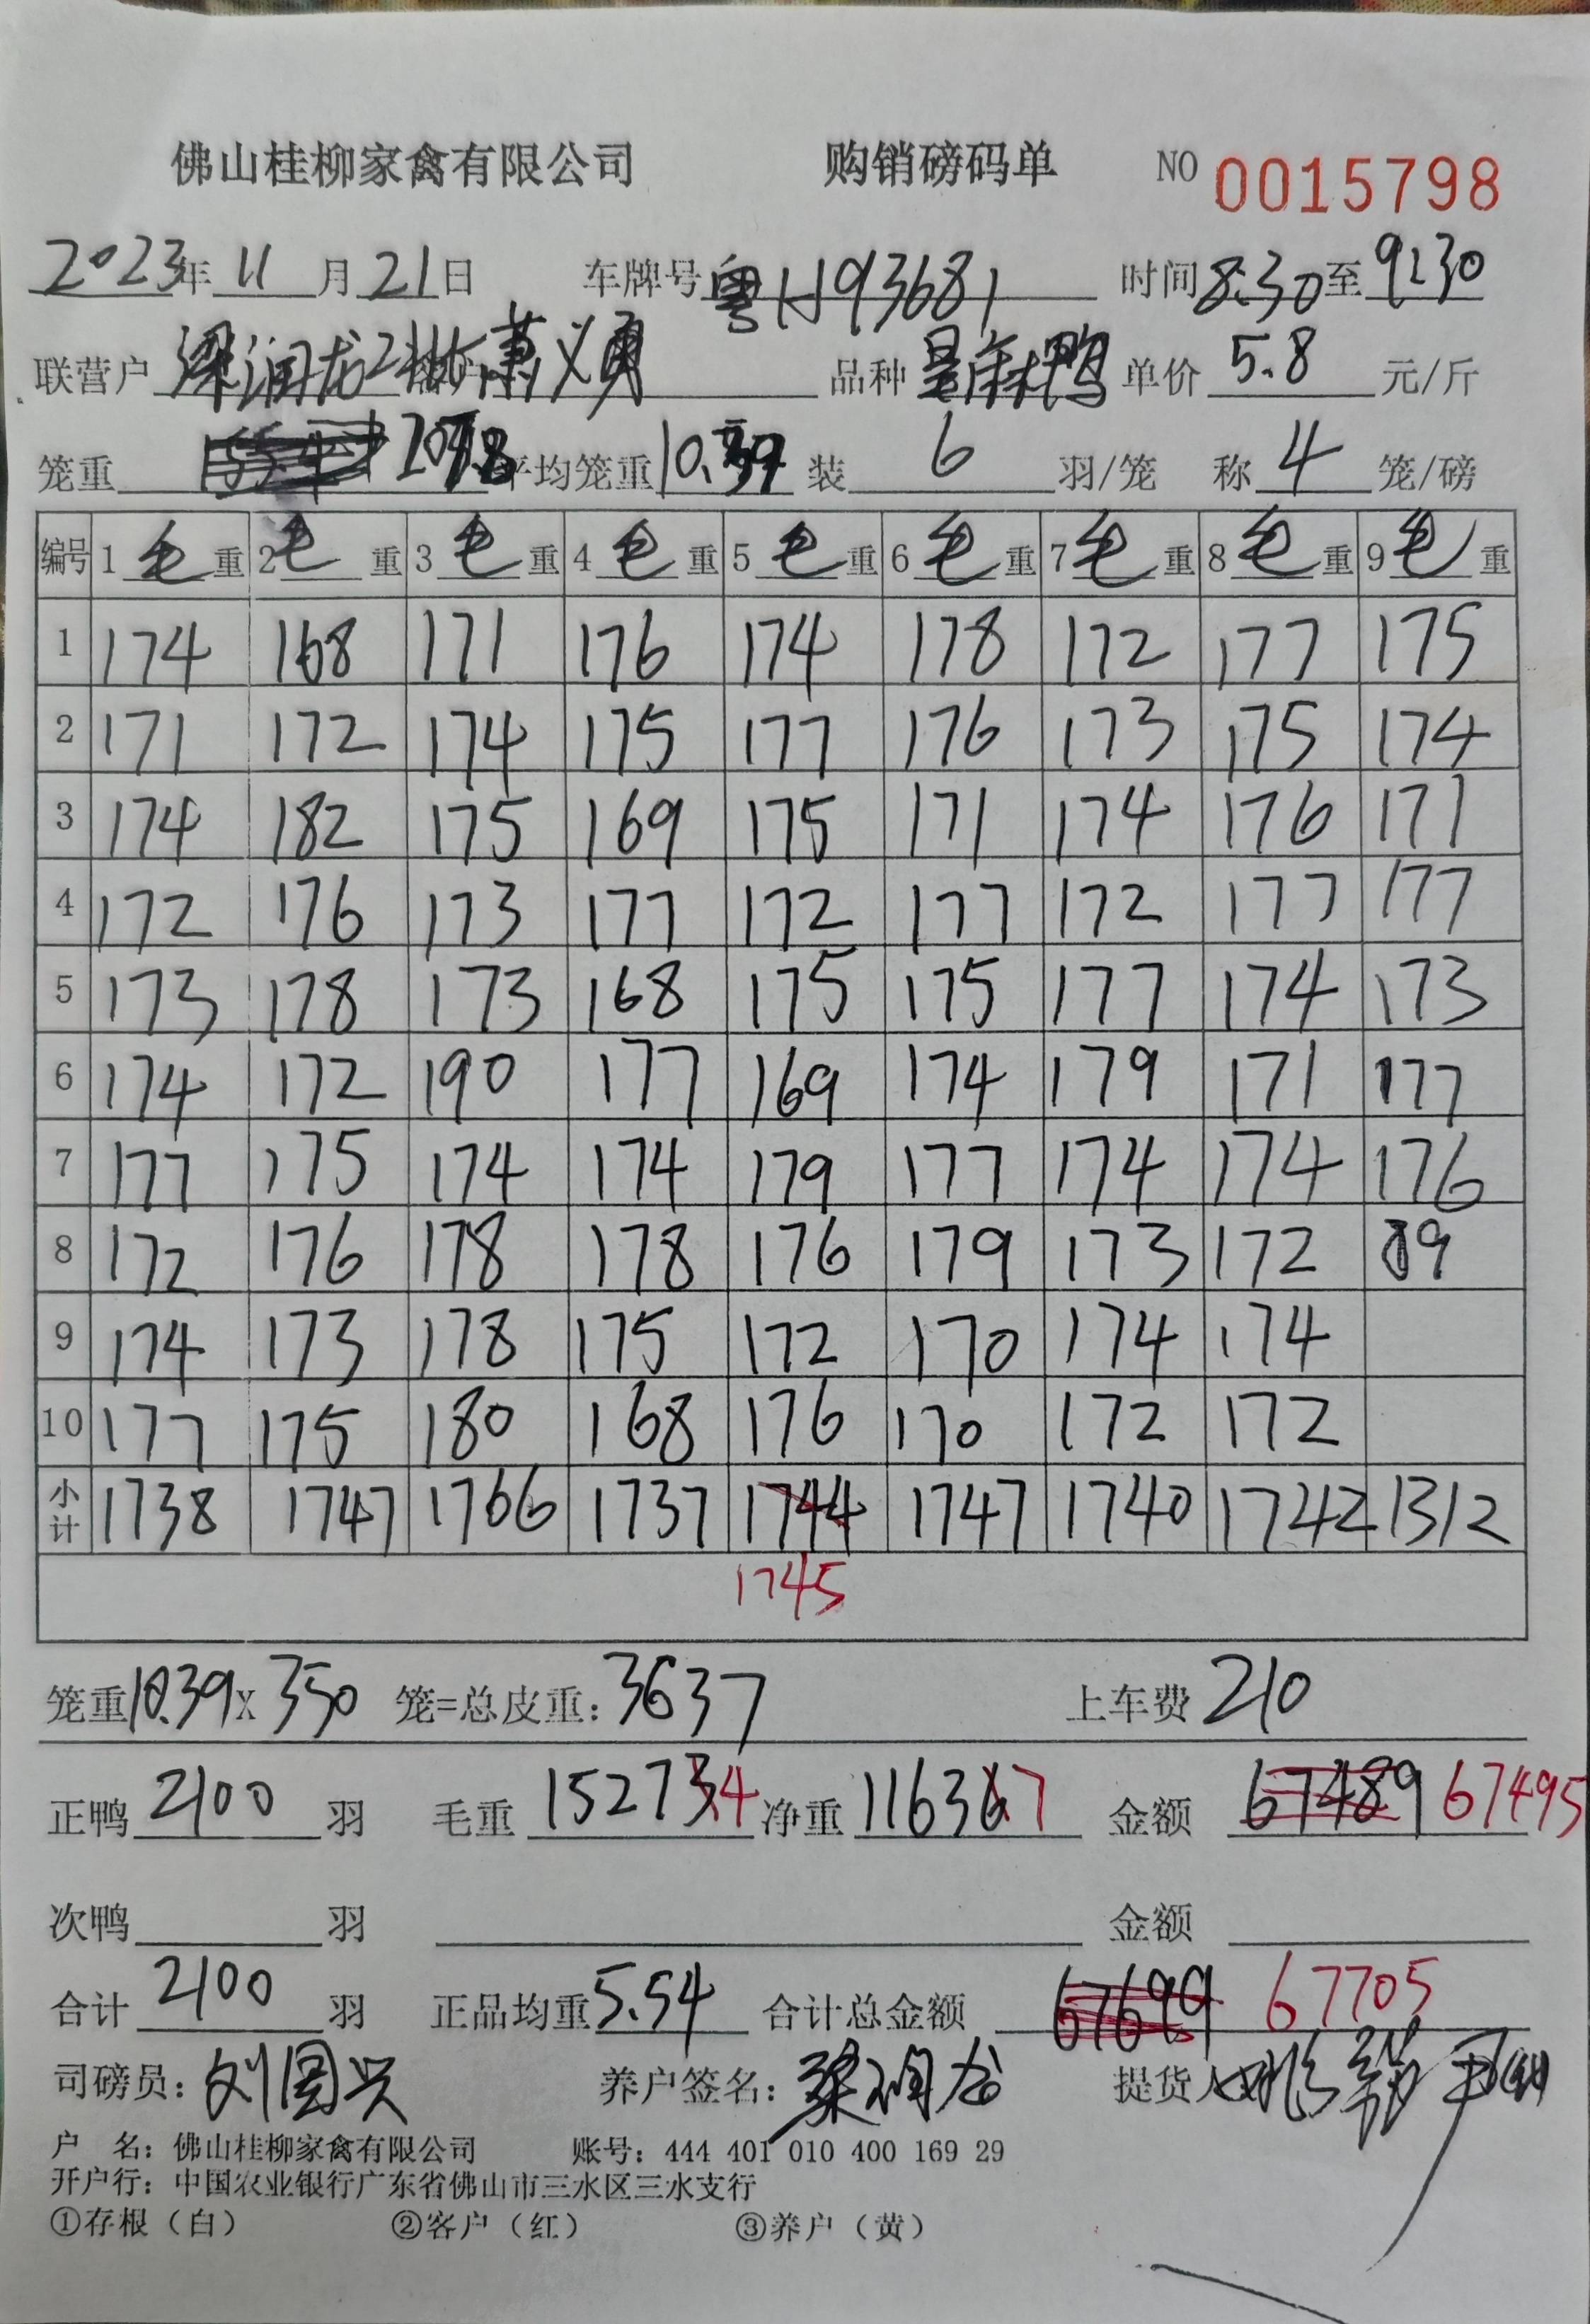 佛山桂柳家禽有限公司 购销磅码单 NO 0015798
2023年 11 月 21 日 车牌号 粤H93681 时间 8:30 至 9:30
联营户 梁润龙2批 客户 萧义勇 品种 麻鸭 单价 5.8 元/斤
笼重 平均笼重 10.39 装 6 羽/笼 称 4 笼/磅
编号 1 毛 重 2 毛 重 3 毛 重 4 毛 重 5 毛 重 6 毛 重 7 毛 重 8 毛 重 9 毛 重
1 174 168 171 176 174 178 172 177 175
2 171 172 174 175 177 176 173 175 174
3 174 182 175 169 175 171 174 176 171
4 172 176 173 177 172 177 172 177 177
5 173 178 173 168 175 175 177 174 173
6 174 172 190 177 169 174 179 171 177
7 177 175 174 174 179 177 174 174 176
8 172 176 178 178 176 179 173 172 89
9 174 173 178 175 172 170 174 174
10 177 175 180 168 176 170 172 172
小计 1738 1747 1766 1737 1744 1747 1740 1742 1312
1745
笼重 10.39 X 350 笼=总皮重: 3637 上车费 210
正鸭 2100 羽 毛重 15274 净重 11637 金额 67489 67495
次鸭 羽 金额
合计 2100 羽 正品均重 5.54 合计总金额 67699 67705
司磅员: 刘国兴 养户签名: 梁润龙 提货人
户 名: 佛山桂柳家禽有限公司 账号: 444 401 010 400 169 29
开户行: 中国农业银行广东省佛山市三水区三水支行
①存根（白） ②客户（红） ③养户（黄）